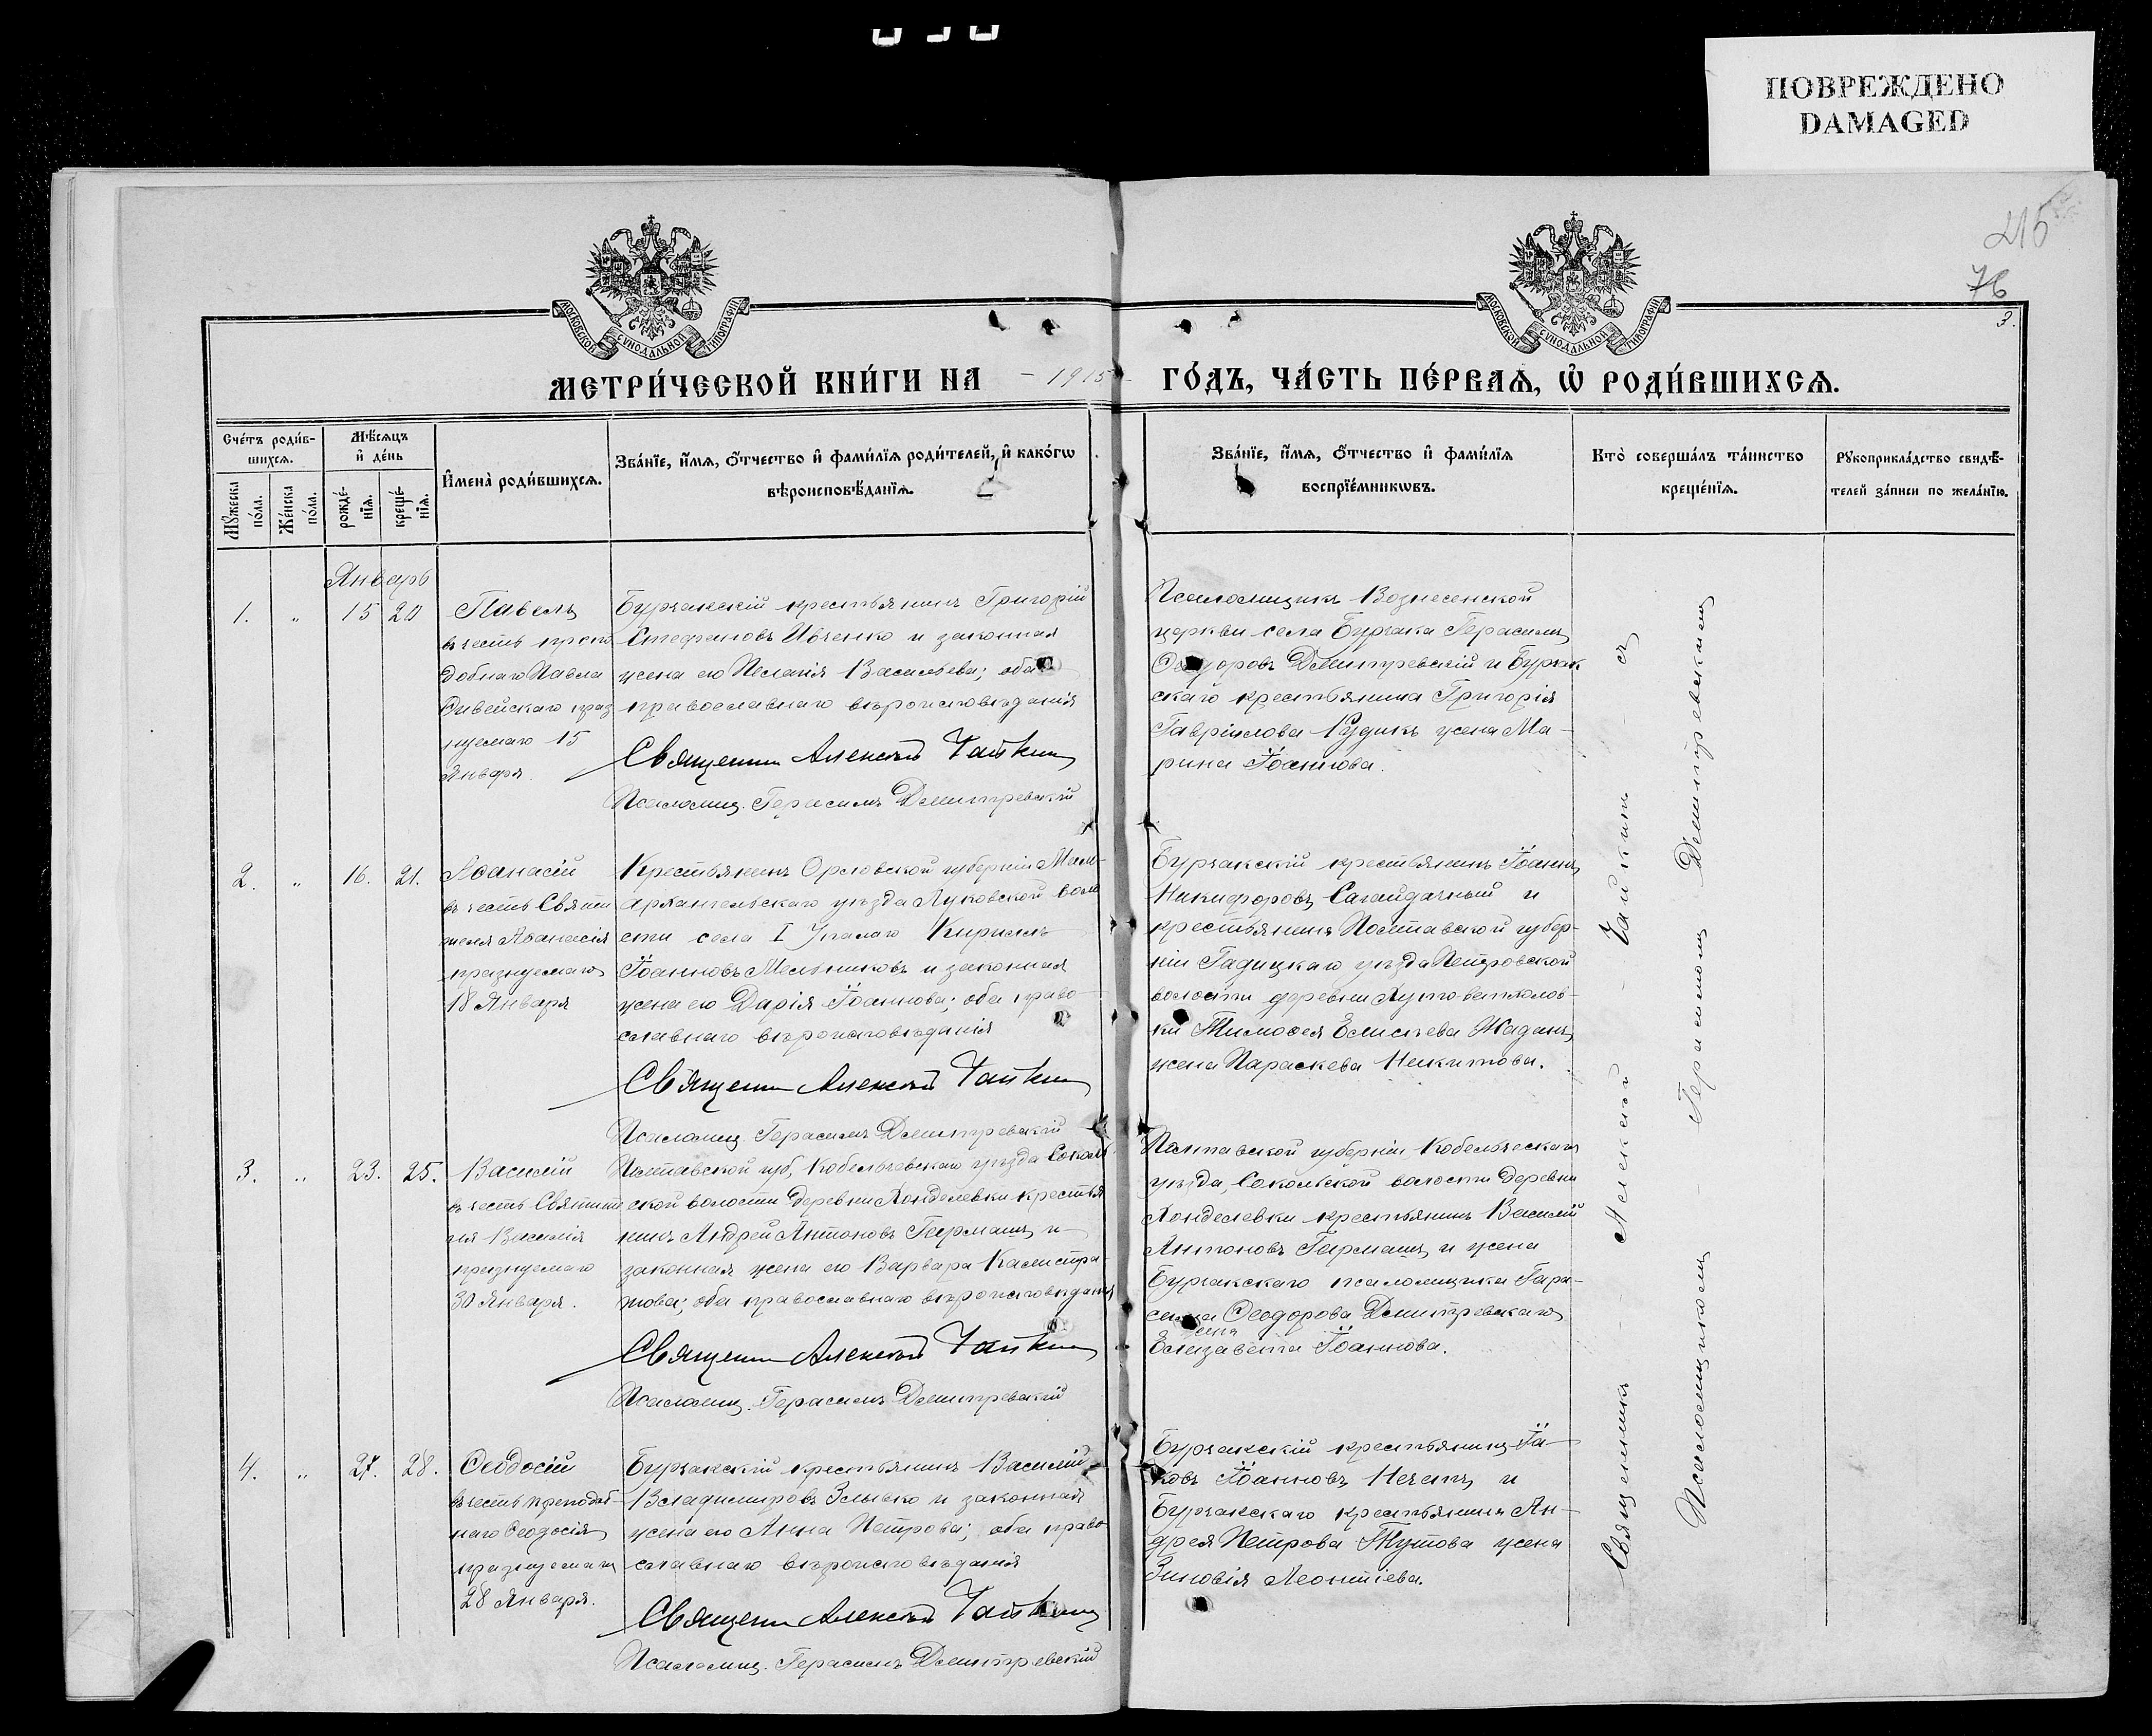 ПОВРЕЖДЕНО
DAMAGED
215
76
3.
МОСКОВСКОЙ СѴНОДАЛЬНОЙ ТИПОГРАФІИ
МОСКОВСКОЙ СѴНОДАЛЬНОЙ ТИПОГРАФІИ
МЕТРИ́ЧЕСКОЙ КНИ́ГИ НА – 1915 – ГО́ДЪ, ЧА́СТЬ ПЕ́РВАѦ, Ѽ РОДИ́ВШИХСѦ.
Сче́тъ роди́в-
шихсѧ.
Мꙋ́жеска по́ла.
Же́нска по́ла.
Мѣ́сѧцъ
и҆ де́нь
рожде́-нїѧ.
креще́-нїѧ.
И҆мена̀ роди́вшихсѧ.
Зва́нїе, и҆́мѧ, ѻ҆́тчество и҆ фами́лїѧ роди́телей, и҆ како́гѡ
вѣроисповѣ́данїѧ.
Зва́нїе, и҆́мѧ, ѻ҆́тчество и҆ фами́лїѧ
воспрїе́мникѡвъ.
Кто̀ соверша́лъ та́инство
креще́нїѧ.
Рꙋкоприкла́дство свидѣ́-
телей за́писи по жела́нїю.
Январь
1. „ 15 20
Павелъ
въ честь препо
добнаго Павла
Ѳивейскаго праз
нуемаго 15
Января.
Бурчакскій крестьянинъ Григорій
Стефановъ Ивченко и законная
жена его Пелагія Васильева; оба
православнаго вѣроисповѣданія
Священникъ Алексѣй Чайкинъ
Псаломщ. Герасимъ Демитревскій
Псаломщикъ Вознесенской
церкви села Бурчака Герасимъ
Ѳеодоровъ Демитревскій и Бурчак
скаго крестьянина Григорія
Гавріилова Рудикъ жена Ма-
рина Іоаннова.
2. „ 16. 21.
Аѳанасій
въ честь Святи
теля Аѳанасія
празнуемаго
18 Января
Крестьянинъ Орловской губерніи Мало-
архангельскаго уѣзда Луковской воло
сти села I Упалаго Кириллъ
Іоанновъ Мельниковъ и законная
жена его Дарія Іоаннова; оба право-
славнаго вѣроисповѣданія
Священникъ Алексѣй Чайкинъ
Псаломщ. Герасимъ Демитревскій
Бурчакскій крестьянинъ Іоаннъ
Никифоровъ Сагайдачный и
крестьянина Полтавской губер-
ніи Гадяцкаго уѣзда Петровской
волости деревни
ки Тимоѳея Елисѣева Жаданъ
жена Параскева Никитова.
3. „ 23. 25.
Василій
въ честь Святит
ля Василія
празнуемаго
30 Января.
Полтавской губ. Кобелякскаго уѣзда Соколь
ской волости деревни Хонделевки крестья
нинъ Андрей Антоновъ Гармашъ и
законная жена его Варвара Калистра-
това; оба православнаго вѣроисповѣданія
Священникъ Алексѣй Чайкинъ
Псаломщ. Герасимъ Демитревскій
Полтавской губерніи Кобелякскаго
уѣзда, Сокольской волости деревни
Хонделевки крестьянинъ Василій
Антоновъ Гармашъ и жена
Бурчакскаго псаломщика Гера-
сима Ѳеодорова Демитревскаго
жена
Елизавета Іоаннова.
4. „ 27. 28.
Ѳеодосій
въ честь преподоб-
наго Ѳеодосія
празнуемаго
28 Января.
Бурчакскій крестьянинъ Василій
Владимировъ Зливко и законная
жена его Анна Петрова; оба право-
славнаго вѣроисповѣданія
Священникъ Алексѣй Чайкинъ
Псаломщ. Герасимъ Демитревскій
Бурчакскій крестьянинъ Іа-
ковъ Іоанновъ Нечетъ и
Бурчакскаго крестьянина Ан-
дрея Петрова Тутова жена
Зиновія Леонтіева.
Священникъ – Алексѣй – Чайкинъ – съ
Псаломщикомъ – Герасимомъ Демитревскимъ